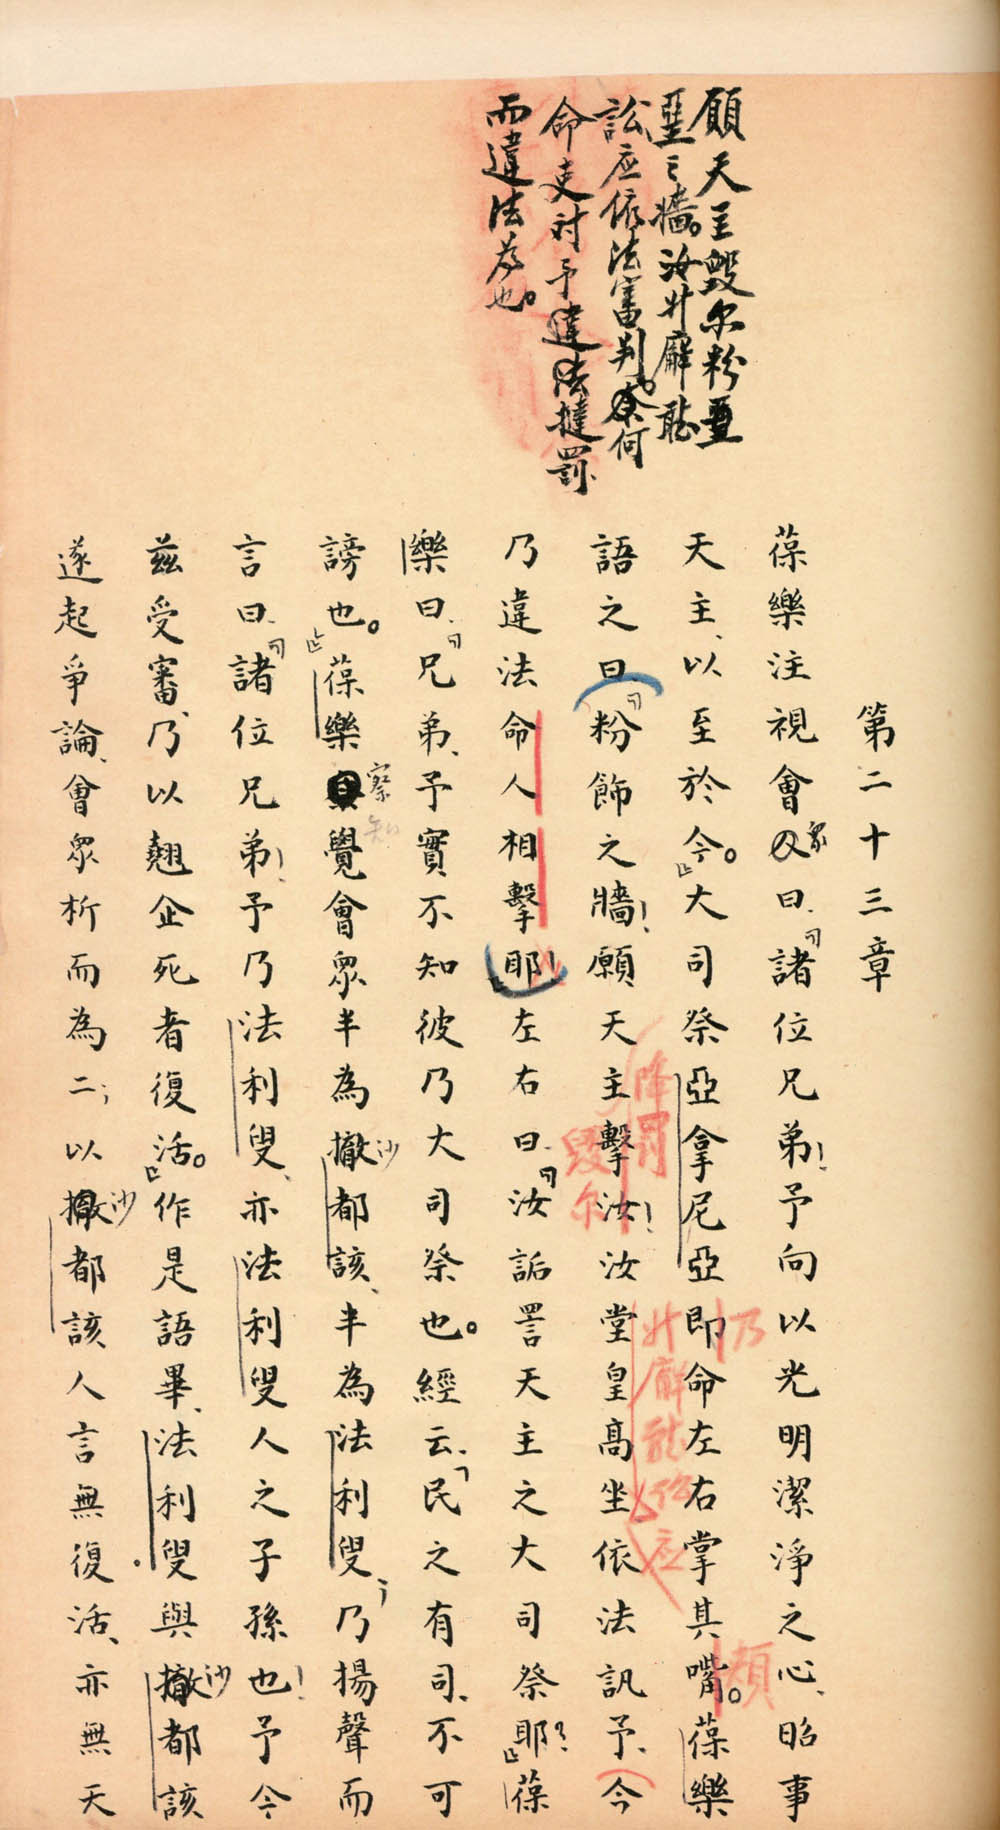 願天主毀尔粉堊
堊之牆。汝升廨聽
訟应依法審判。何
命吏对予違法撻罰
而違法為也。
第二十三章
葆樂注視會眾曰、「諸位兄弟！予向以光明潔淨之心、昭事
天主、以至於今。」大司祭亞拿尼亞即命左右掌其嘴。葆樂
乃
頰
語之曰、「粉飾之牆！願天主擊汝！汝堂皇高坐、依法訊予、今
降罰
毀尔
升廨聽訟应
乃違法命人相擊耶！」左右曰、「汝詬詈天主之大司祭耶？」葆
樂曰、「兄弟、予實不知彼乃大司祭也。經云、「民之有司、不可
謗也。」葆樂覺會眾半為撒都該、半為法利叟；乃揚聲而
察知
沙
言曰、「諸位兄弟！予乃法利叟、亦法利叟人之子孫也！予今
茲受審、乃以翹企死者復活。」作是語畢、法利叟與撒都該
沙
遂起爭論、會眾析而為二；以撒都該人言無復活、亦無天
沙